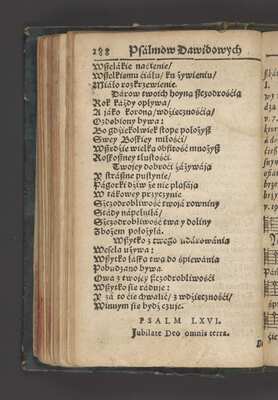 188 Psalmow Dawidowych
Wszelákie naśienie/
Wszelkiemu ćiáłu/ ku żywieniu/
Miáło rozkrzewienie.
Darow twoich hoyną szczodrośćią
Rok káżdy opływa/
A jáko koroną/ wdźiecznośćią/
Ozdobiony bywa:
Bo gdźiekolwiek stopę położysz
Swey Boskiey miłośći/
Wszędźie wielką obfitość mnożysz
Roskoszney tłustośći.
Twojey dobroći záżywáją
Y strászne pustynie/
Págorki dźiw że nie plásáją
W tákowey przyczynie.
Szczodrobliwość twojá rowniny
Stády nápełniłá/
Szczodrobliwość twa y doliny
Zbożem położyłá.
Wszytko z twego udárowánia
Wesela używa:
Wszytko łáską twą do śpiewánia
Pobudzano bywa.
Owa z twojey szczodrobliwośći
Wszytko sie ráduje:
Y zá to ćie chwalić/ z wdźięcznośći/
Winnym sie bydź czuje.
PSALM LXVI.
Jubilate Deo omnis terra.